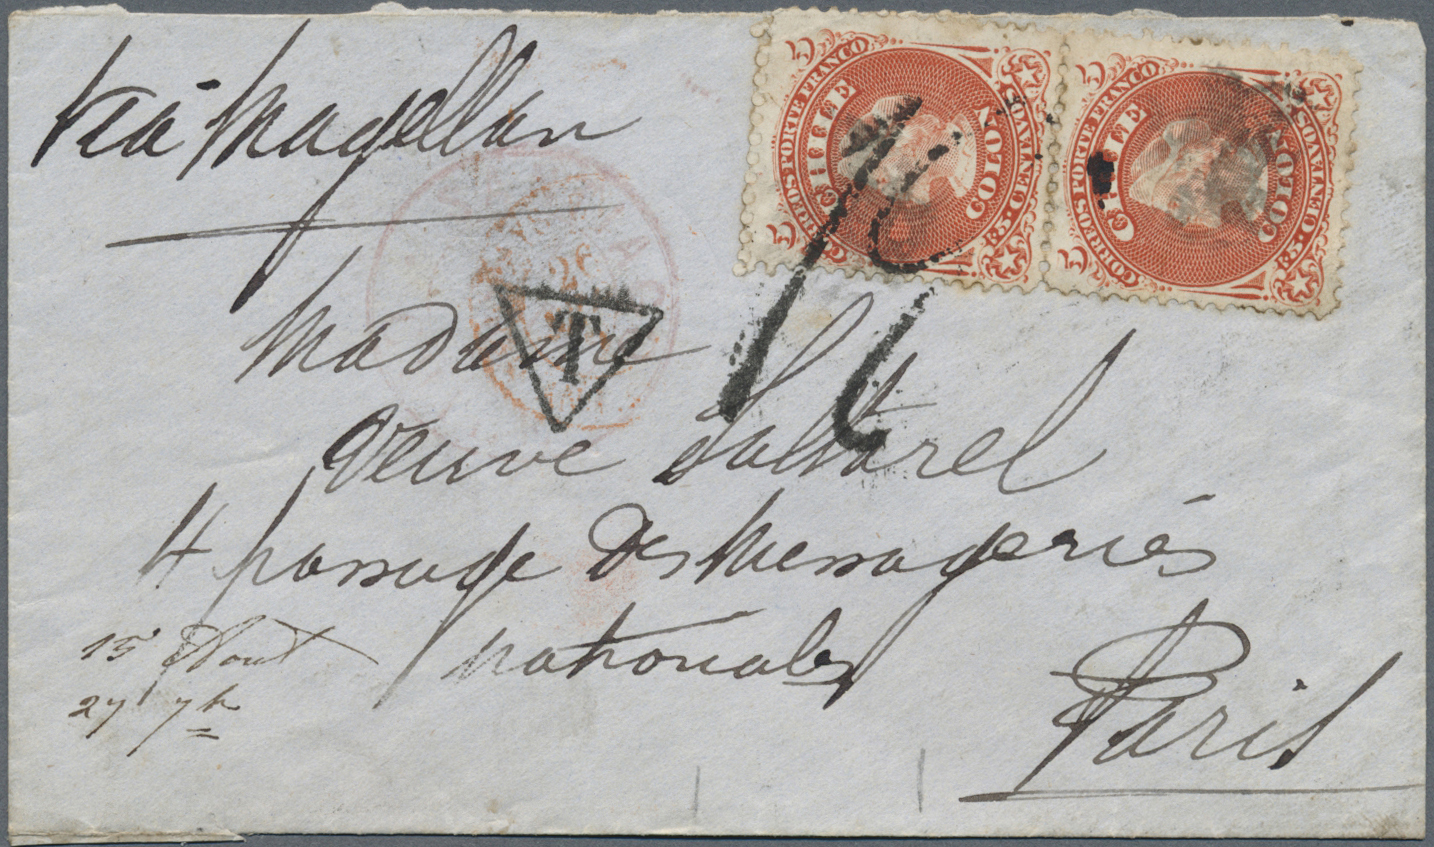 Via Magellan
CORREOS PORTE FRANCO
CHILE
COLON
5 CENTAVOS
CORREOS PORTE FRANCO
CHILE
COLON
5 CENTAVOS
T
Madame
Veuve Saltarel
4 passage des Messageries
nationales
Paris
15 Aout
27 7h